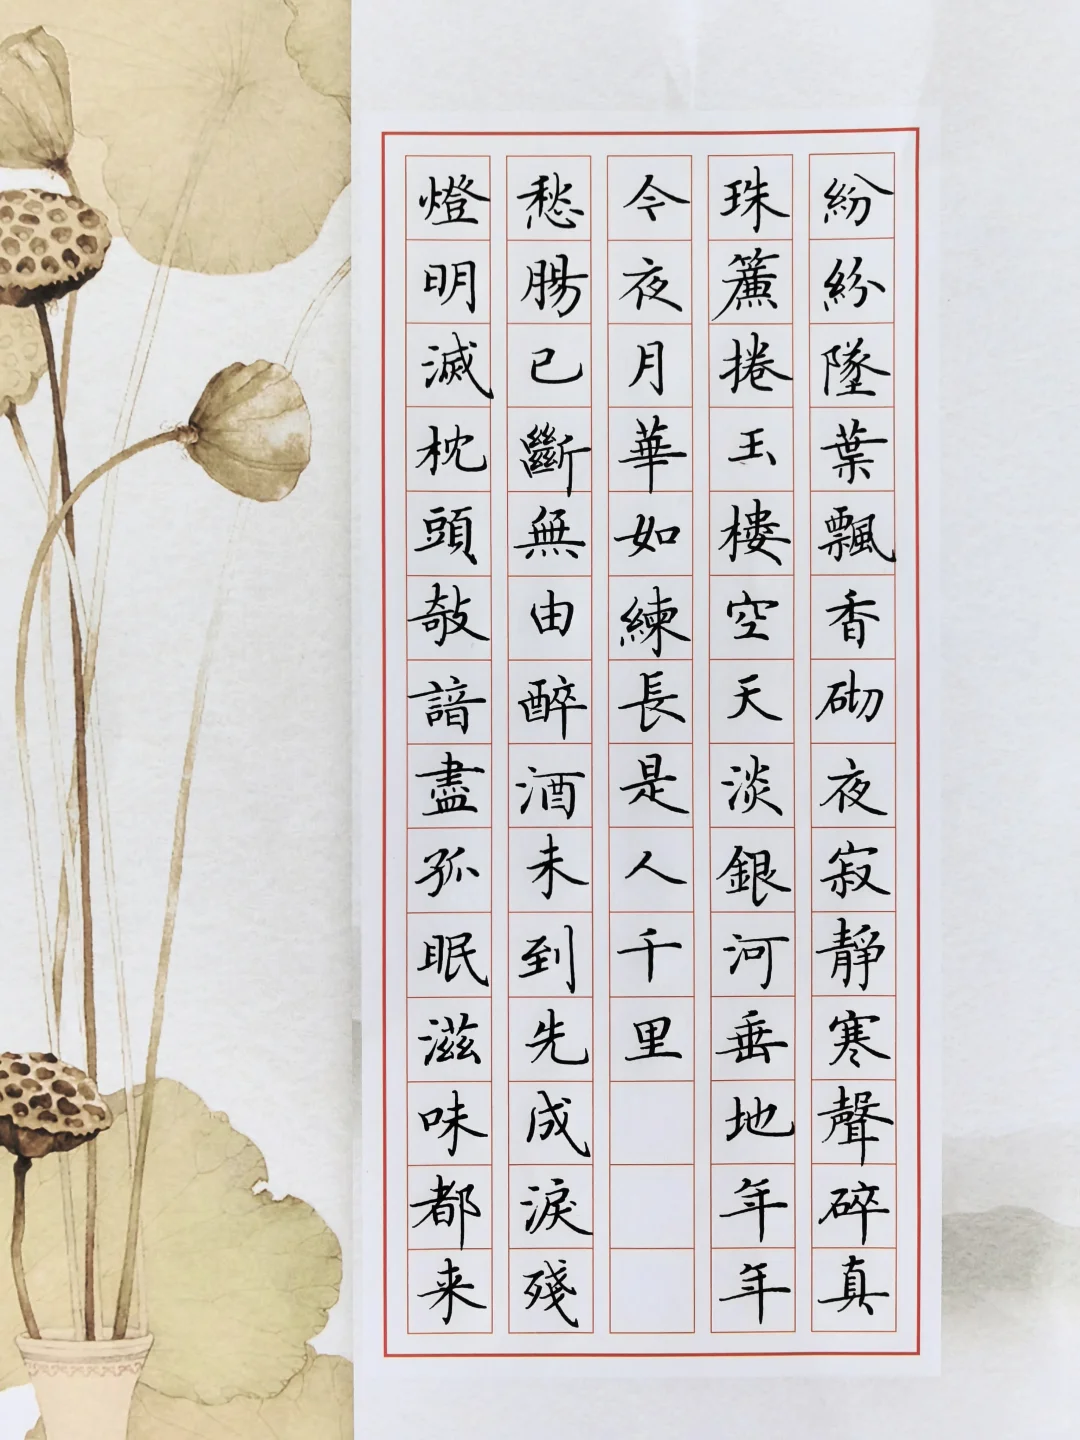 紛紛墜葉飄香砌夜寂靜寒聲碎真
珠簾捲玉樓空天淡銀河垂地年年
今夜月華如練長是人千里
愁腸已斷無由醉酒未到先成淚殘
燈明滅枕頭敧諳盡孤眠滋味都来